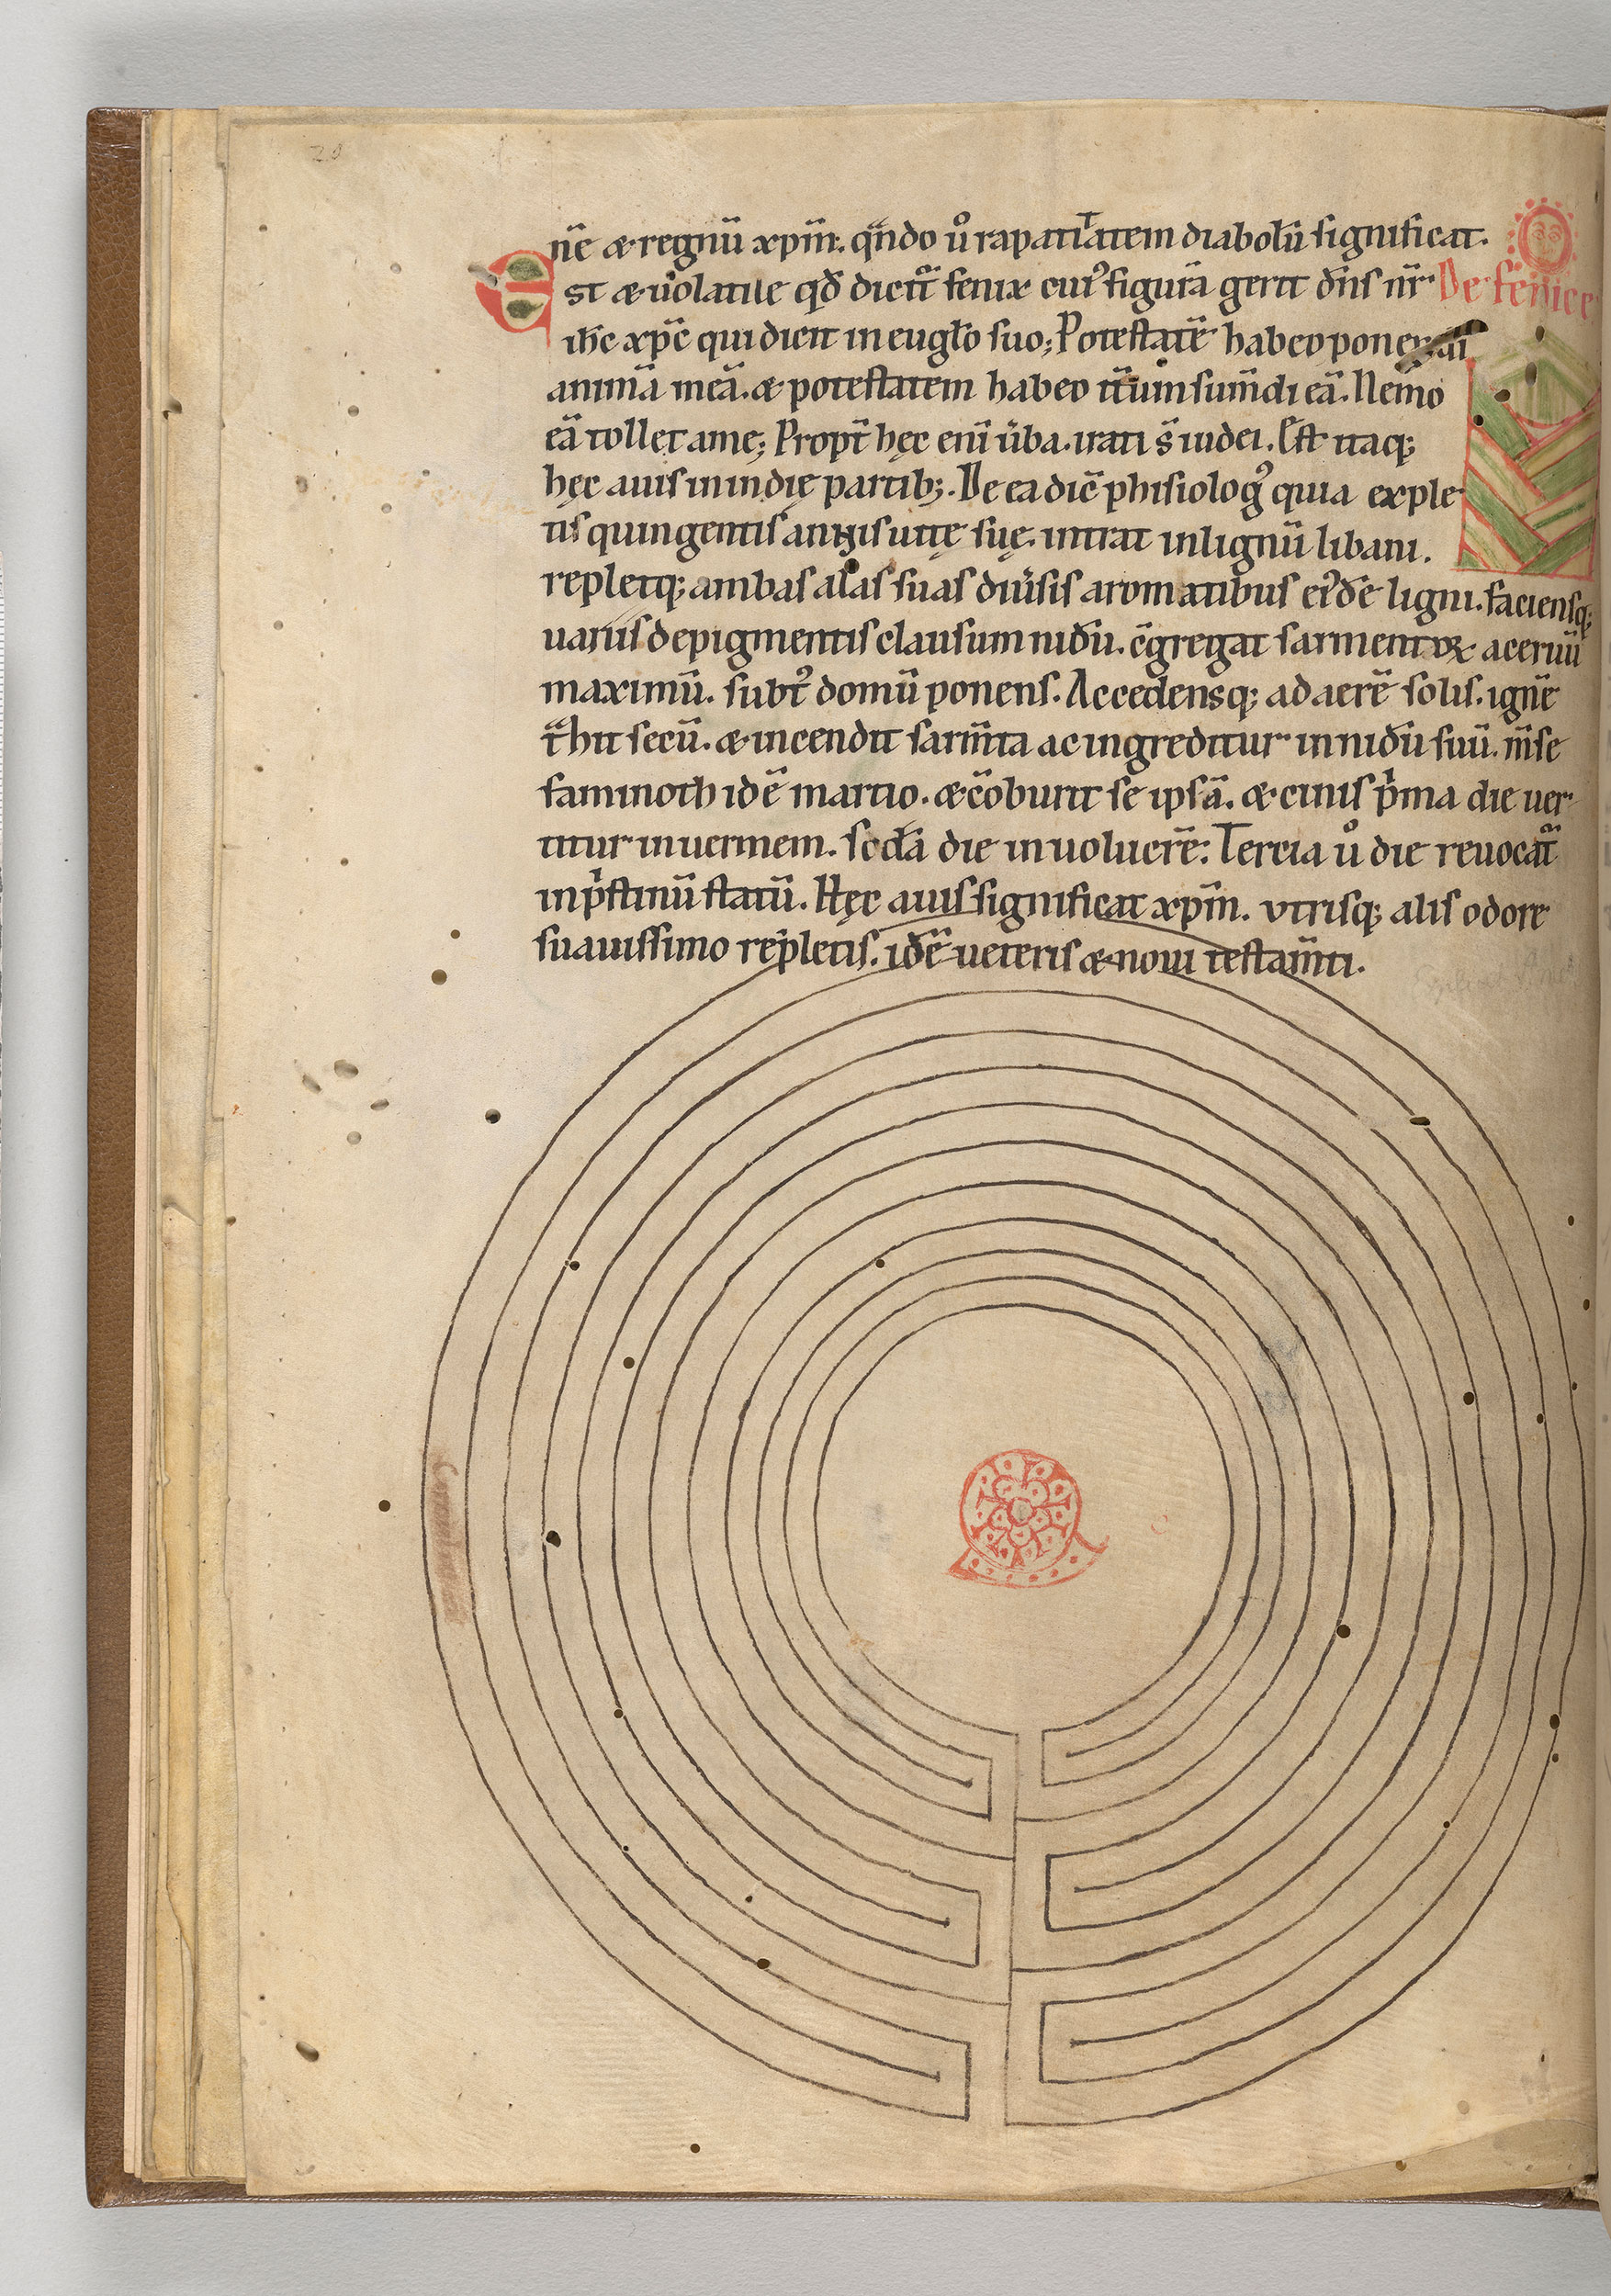 20
nē & regnū xp̄m. qn̄do ů rapatitatem diabolū significat.
Est & uolatile qđ dicit̄ fenix cui᾽ figurā gerit dn̄s nr̄ De fenice
ihc̄ xp̄c qui dicit in euglo suo; Potestatē habeo ponendi
animā meā. & potestatem habeo itūm sumdi eā. Nemo
eā tollet a me; Propt̄ hęc eni uba. irati s̄ iudei. Est itaq;
hęc auis in indię partib;. De ea dic̄ phisiolog᾽ quia exple
tis quingentis annis uitę suę. intrat in lignū libani.
repletq; ambas alas suas diuisis aromatibus ei᾽dē ligni. faciensq;
uariis de pigmentis clausum nidū. c̄gregat sarmentoꝝ aceruū
maximū. subt᾽ domū ponens. Accedensq; ad aerē solis. ignē
t̄hit secū. & incendit sarm̄ta ac ingreditur in nidū suū. m̄se
faminoth idē martio. & c̄oburit se ipsā. & cinis p̄ma die uer
titur in uermem. sc̄da die in uolucrē. Tercia ů die reuocat̄
in p̄stinū statū. Hęc auis significat xp̄m. vtrisq; alis odore
suauissimo repletis. idē ueteris & noui testam̄ti.